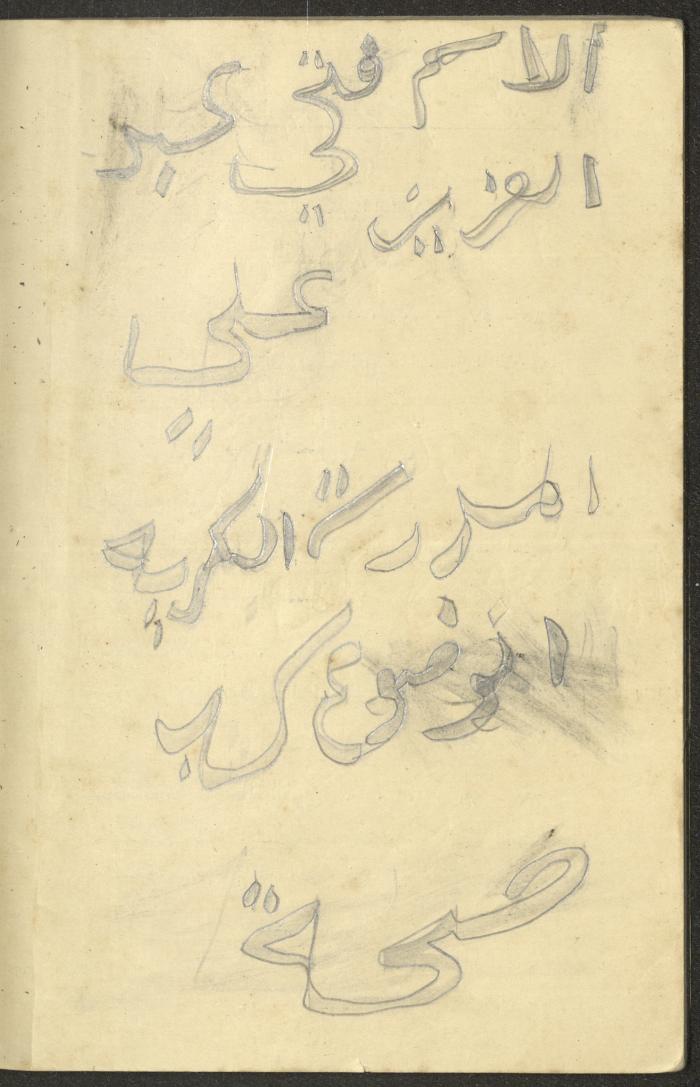 الاسم فتحي عبد
العزيز
علي
المدرسة الكريمية
الموضوع كتاب
صحة